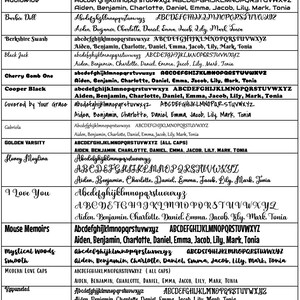 Aiden, Benjamin, Charlotte, Daniel, Emma, Jacob, Lily, Mark, Tonia
Barbie Doll
Abcdefghijklmnopqrstuvwxyz ABCDEFGHIJKLMNOPQRSTUVWXYZ
Aiden, Benjamin, Charlotte, Daniel, Emma, Jacob, Lily, Mark, Tonia
Berkshire Swash
Abcdefghijklmnopqrstuvwxyz ABCDEFGHIJKLMNOPQRSTUVWXYZ
Aiden, Benjamin, Charlotte, Daniel, Emma, Jacob, Lily, Mark, Tonia
Black Jack
Abcdefghijklmnopqrstuvwxyz ABCDEFGHIJKLMNOPQRSTUVWXYZ
Aiden, Benjamin, Charlotte, Daniel, Emma, Jacob, Lily, Mark, Tonia
Cherry Bomb One
Abcdefghijklmnopqrstuvwxyz ABCDEFGHIJKLMNOPQRSTUVWXYZ
Aiden, Benjamin, Charlotte, Daniel, Emma, Jacob, Lily, Mark, Tonia
Cooper Black
Abcdefghijklmnopqrstuvwxyz ABCDEFGHIJKLMNOPQRSTUVWXYZ
Aiden, Benjamin, Charlotte, Daniel, Emma, Jacob, Lily, Mark, Tonia
Covered by your Grace
Abcdefghijklmnopqrstuvwxyz ABCDEFGHIJKLMNOPQRSTUVWXYZ
Aiden, Benjamin, Charlotte, Daniel, Emma, Jacob, Lily, Mark, Tonia
Gabriola
Abcdefghijklmnopqrstuvwxyz ABCDEFGHIJKLMNOPQRSTUVWXYZ
Aiden, Benjamin, Charlotte, Daniel, Emma, Jacob, Lily, Mark, Tonia
GOLDEN VARSITY
ABCDEFGHIJKLMNOPQRSTUVWXYZ (ALL CAPS)
AIDEN, BENJAMIN, CHARLOTTE, DANIEL, EMMA, JACOB, LILY, MARK, TONIA
Abcdefghijklmnopqrstuvwxyz
ABCDEFGHIJKLMNOPQRSTUVWXYZ
Aiden, Benjamin, Charlotte, Daniel, Emma, Jacob, Lily, Mark, Tonia
I Love You
Abcdefghijklmnopqrstuvwxyz
ABCDEFGHIJKLMNOPQRSTUVWXYZ
Aiden, Benjamin, Charlotte, Daniel, Emma, Jacob, Lily, Mark, Tonia
Mouse Memoirs
Abcdefghijklmnopqrstuvwxyz ABCDEFGHIJKLMNOPQRSTUVWXYZ
Aiden, Benjamin, Charlotte, Daniel, Emma, Jacob, Lily, Mark, Tonia
Mystical Woods
Smooth
Abcdefghijklmnopqrstuvwxyz ABCDEFGHIJKLMNOPQRSTUVWXYZ
Aiden, Benjamin, Charlotte, Daniel, Emma, Jacob, Lily, Mark, Tonia
MODERN LOVE CAPS
ABCDEFGHIJKLMNOPQRSTUVWXYZ (ALL CAPS)
AIDEN, BENJAMIN, CHARLOTTE, DANIEL, EMMA, JACOB, LILY, MARK, TONIA
Abcdefghijklmnopqrstuvwxyz ABCDEFGHIJKLMNOPQRSTUVWXYZ
Aiden, Benjamin, Charlotte, Daniel, Emma, Jacob, Lily, Mark, Tonia